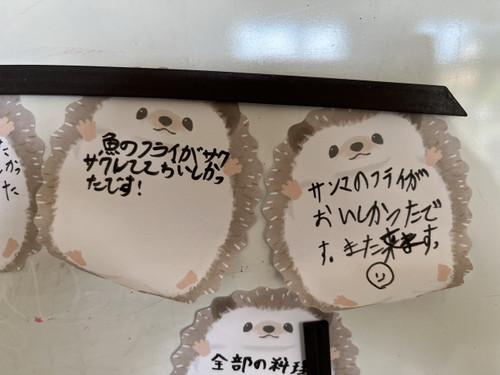 た
しかっ
た
魚のフライがサク
サクしててわいしかっ
たです!
サンマのフライが
おいしかったで
す。また来ます。
全部の料理